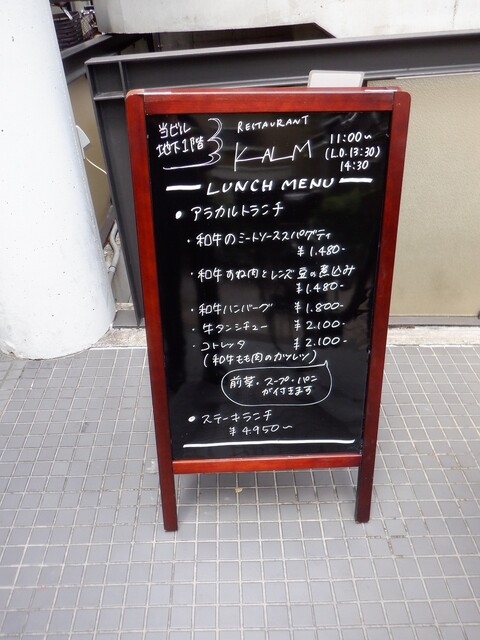 当ビル
地下1階
RESTAURANT
KALM
11:00~
(L.O.13:30)
14:30
LUNCH MENU
• アラカルトランチ
・和牛のミートソーススパゲティ
¥1.480-
・和牛すね肉とレンズ豆の煮込み
¥1.480-
・和牛ハンバーグ ¥1.800-
・牛タンシチュー ¥2.100-
・コトレッタ ¥2.100-
(和牛もも肉のカツレツ)
前菜・スープ・パン
が付きます
• ステーキランチ
¥4.950~